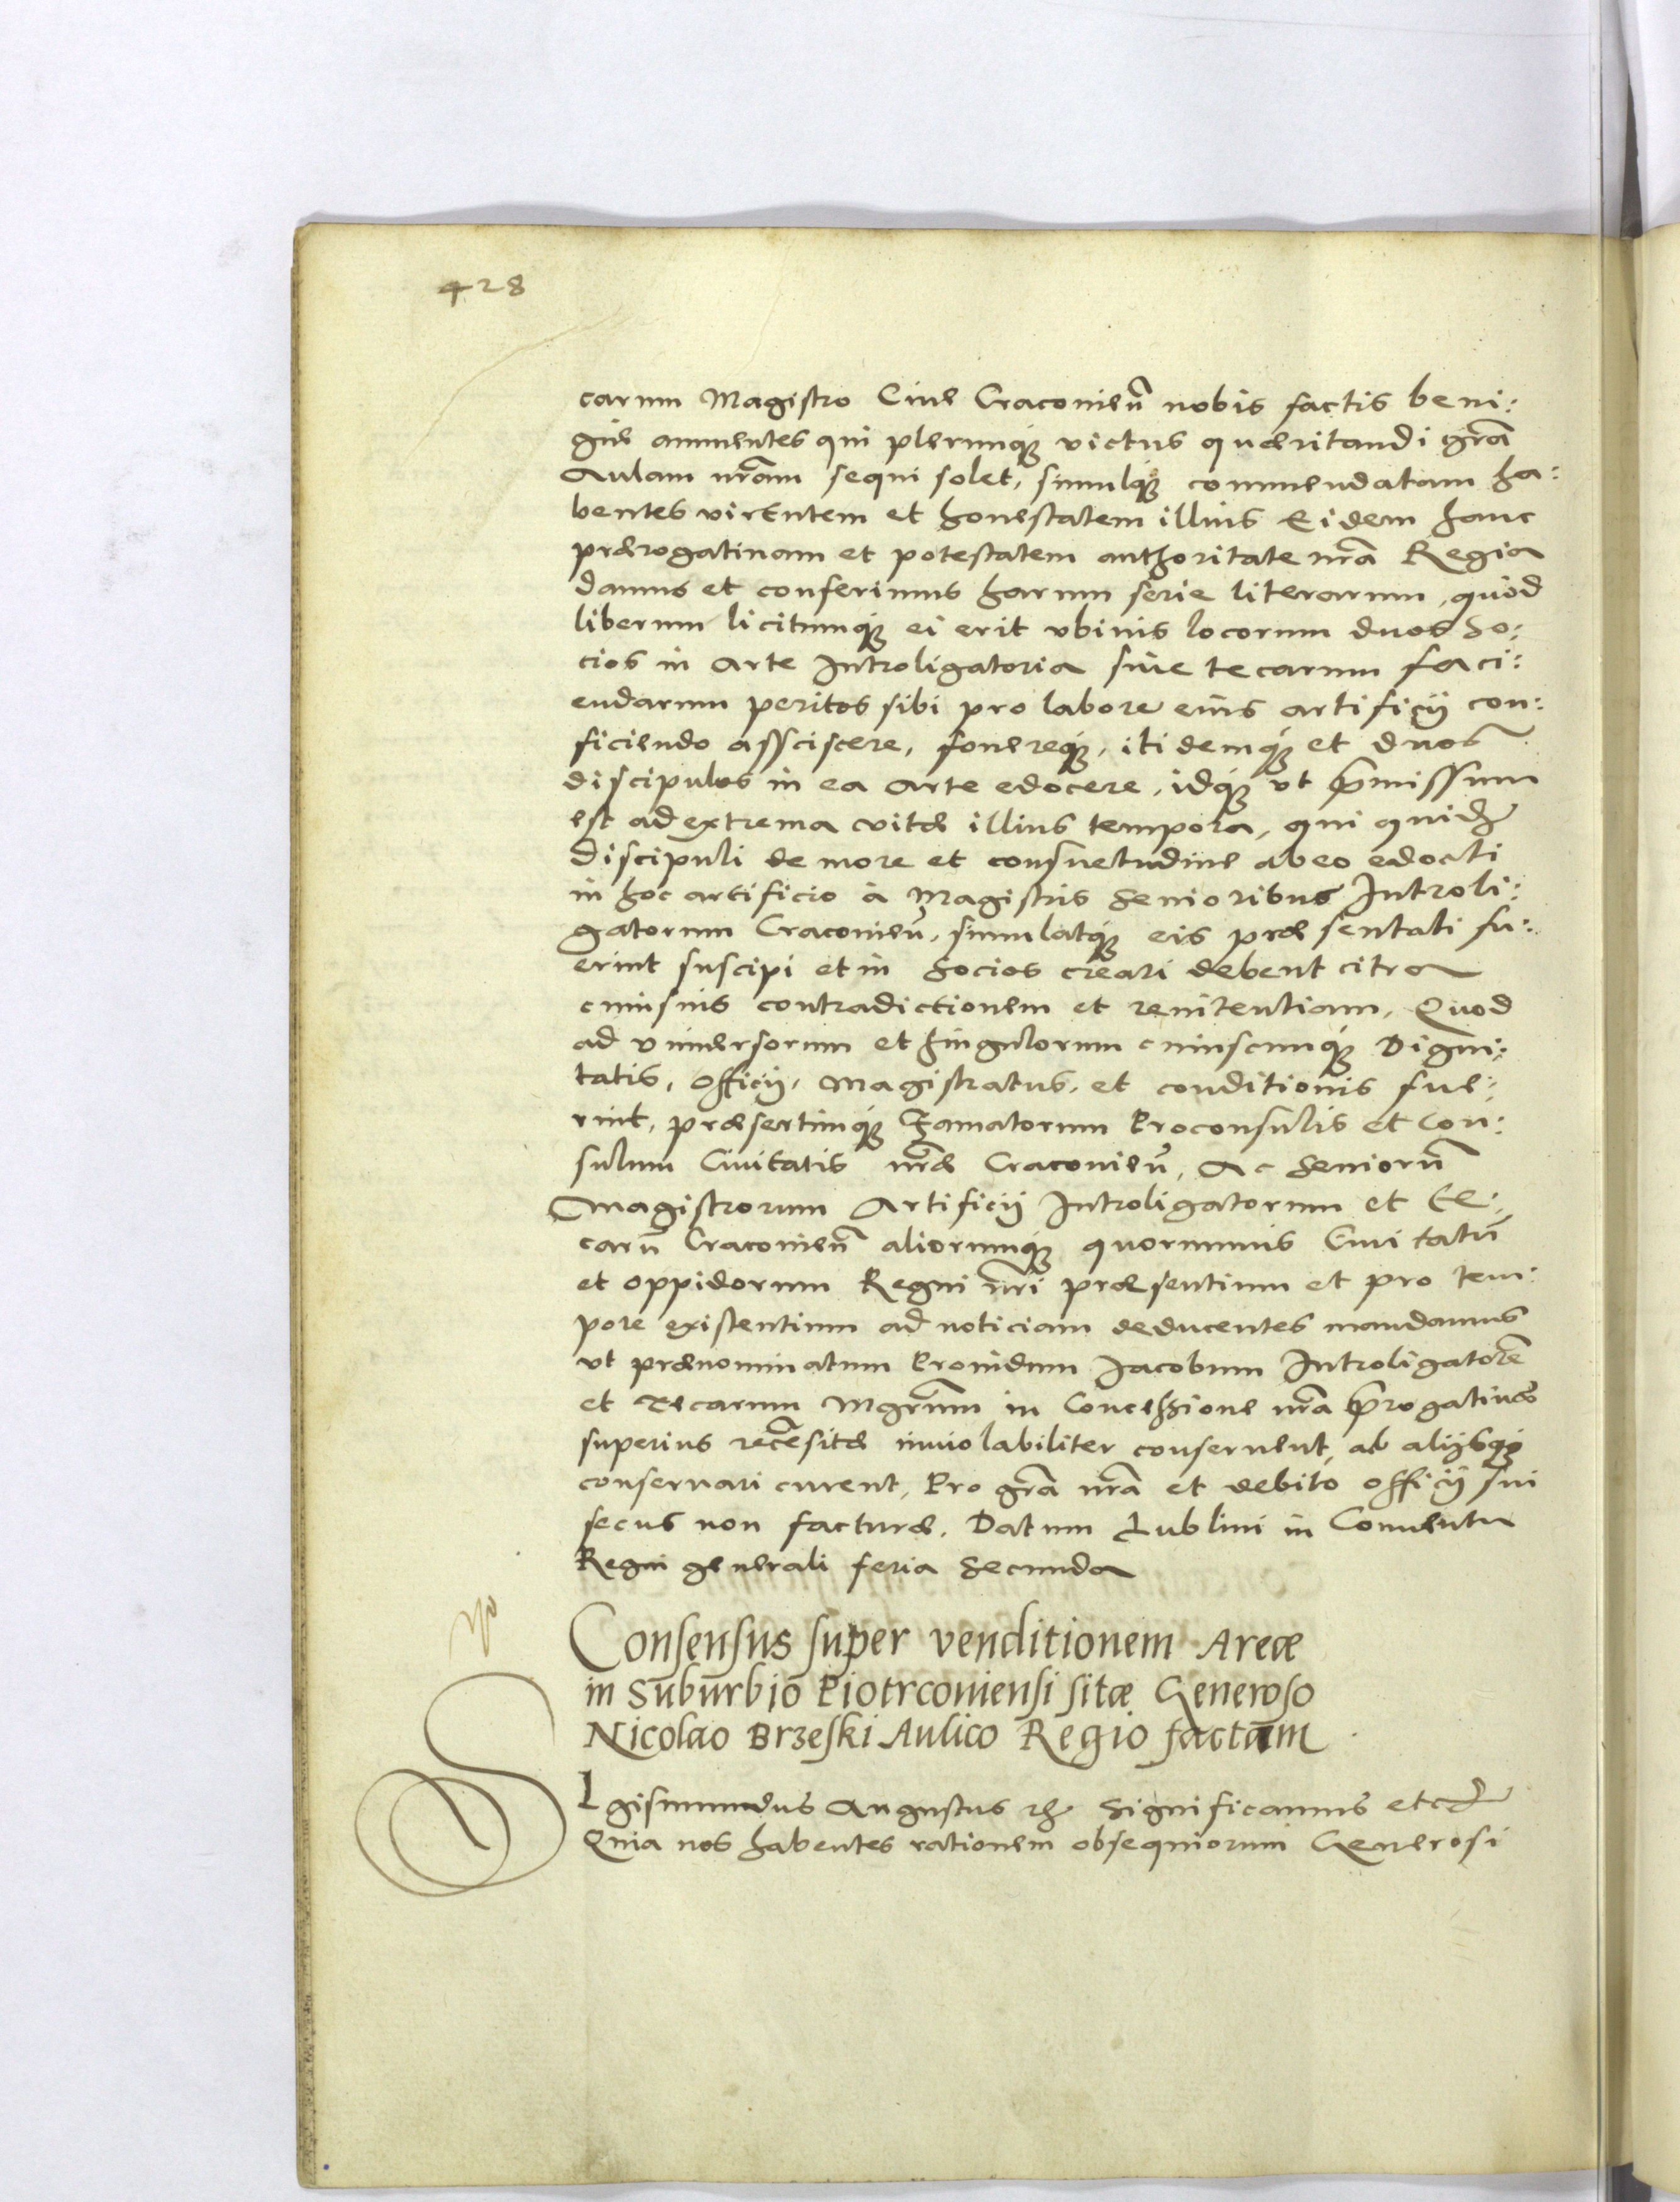 428
carum Magistro Ciue Craconien̄ nobis factis beni:
gne annuentes qui plerunq́ue victus quæritandi grã
Aulam nrãm sequi solet, simulq́ue commendatam ha:
bentes virtutem et honestatem illius Eidem hanc
prærogatiuam et potestatem authoritate nrã Regia
damus et conferimus harum serie literarum, quod
liberum licitumq́ue ei erit vbiuis locorum duos so:
cios in Arte Introligatoria siue tecarum faci:
endarum peritos sibi pro labore eius artificij con:
ficiendo assciscere, fouereq́ue, itidemq́ue et duos
discipulos in ea Arte edocere, idq́ue vt p̄missum
est ad extrema vitæ illius tempora, qui quid
discipuli de more et consuetudine ab eo edocti
in hoc artificio à Magistris Senioribus Introli:
gatorum Craconien̄, simulatq́ue eis præsentati fu:
erint suscipi et in socios creari debent citra
cuiusuis contradictionem et renitentiam, Quod
ad vniuersorum et singulorum cuiuscunq́ue Digni:
tatis, officij, Magistratus, et conditionis fue:
rint, præsertimq́ue Famatorum Proconsulis et Con:
sulum Ciuitatis nrãe Craconien̄, Ac Seniorū
Magistrorum Artificij Introligatorum et Te:
carū Craconien̄ aliorumq́ue quorumuis Ciuitatū
et oppidorum Regni nrĩ præsentium et pro tem:
pore existentium ad noticiam deducentes mandamus
vt prænominatum Prouidum Jacobum Introligatorē
et Tecarum Mgrũm in Concessione nrã p̄rogatiuæ
superius recẽsitæ inuiolabiliter conseruent, ab alijsq́ue
conseruari curent, Pro grã nrã et debito officij sui
secus non facturæ. Datum Lublini in Conuentu
Regni generali feria secunda
Consensus super venditionem Areæ
in Suburbio Piotrconiensi sitæ Generoso
Nicolao Brzeski Aulico Regio factam
SIgismundus Augustus rz Significamus etcz
Quia nos habentes rationem obsequiorum Generosi